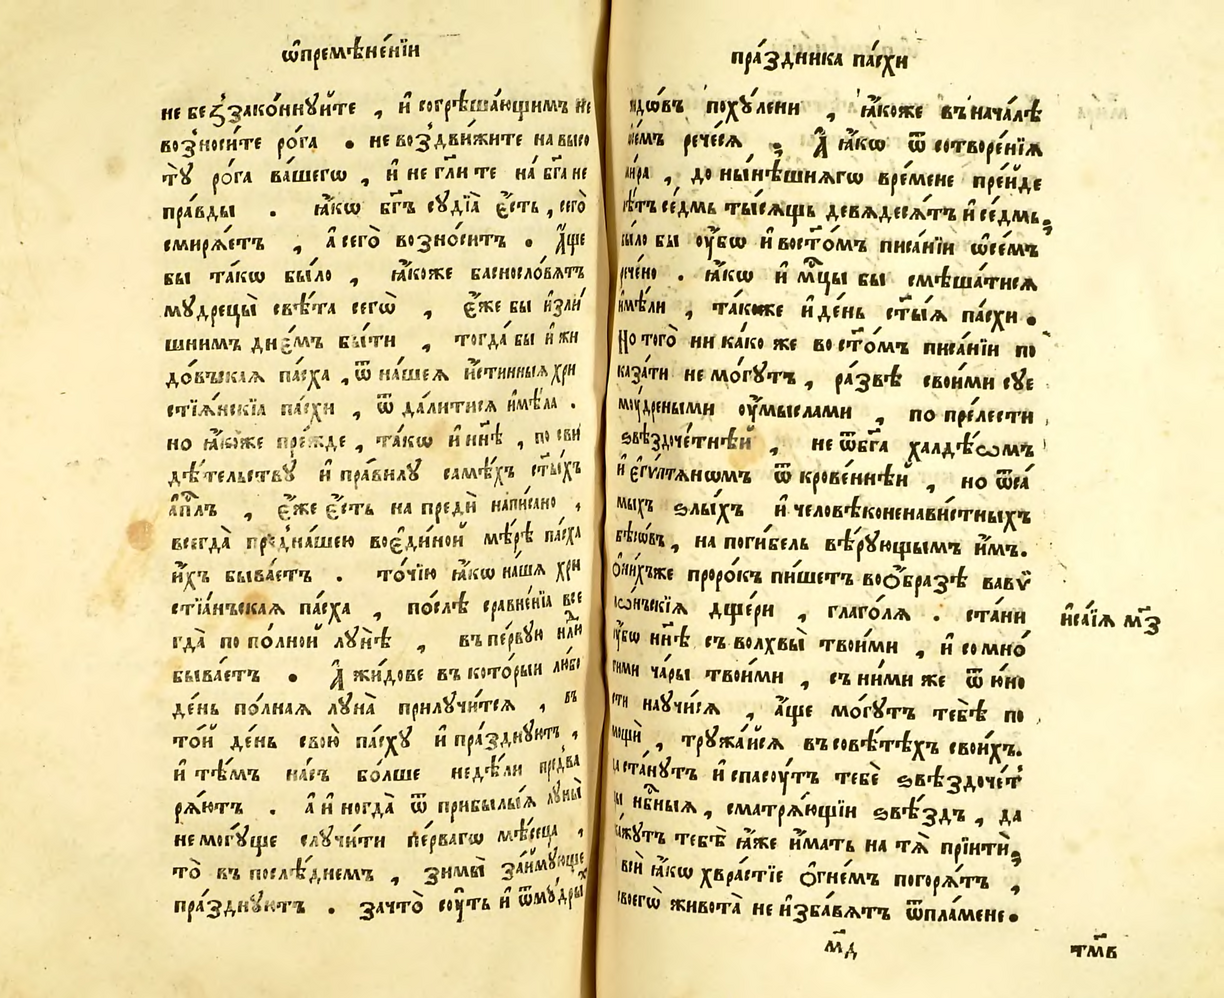 ѡ҆премѣне́нїи
не беꙁзако́ннꙋйте , и҆ согрѣша́ющимъ не
возноси́те ро́га . не воздви́жите на высо
тꙋ̀ ро́га ва́шегѡ , и҆ не гл҃и те на́ бг҃а не
пра́вды . ꙗ҆́кѡ бг҃ъ сꙋдїа̀ є҆́сть , сего̀
смирѧ́етъ , а҆ сего̀ возно́ситъ . А҆́ще
бы та́кѡ бы́ло , ꙗ҆́коже баснослѡ́вѧтъ
мꙋдрецы̀ свѣ́та сегѡ̀ , є҆́же бы и҆зли́
шнимъ дне́мъ бы́ти , тогда́ бы и҆ жи
до́въкаѧ па́сха , ѿ на́шеѧ и҆́стинныѧ хри
стїѧ́нскїа па́схи , ѿ дали́тисѧ и҆мѣ́ла .
но ꙗ҆́коже пре́жде , та́кѡ и҆ нн҃ѣ , по сви
дѣ́тельствꙋ и҆ пра́вилꙋ самѣ́хъ ст҃ы́хъ
а҆пл҃ъ , є҆́же є҆́сть на предѝ напи́сано ,
всегда̀ пред̾на́шею воє҆ди́ной мѣ́рѣ па́сха
и҆́хъ быва́етъ . то́чїю ꙗ҆́кѡ на́ша хри
стїа́нъскаѧ па́сха , по́слѣ сравне́нїа все
гда̀ по по́лной лꙋ́нѣ , въ пе́рвꙋю нл҃и
быва́етъ . А҆ жи́дове въ кото́рыи ли́бо
де́нь по́лнаѧ лꙋна̀ прилꙋчи́тсѧ , въ
то́й де́нь свою̀ па́схꙋ и҆ пра́зднꙋютъ ,
и҆ тѣ́мъ на́съ бо́лше недѣ́ли предва
рѧ́ютъ . а҆ и҆ногда̀ ѿ прибылы́ѧ лꙋны̀
не могꙋ́ще слꙋчи́ти пе́рвагѡ мѣ́сеца ,
то̀ въ послѣ́днемъ , зимы̀ займꙋ́юще
пра́зднꙋютъ . зачто̀ сꙋ́ть и҆ ѿмꙋ́дрых
пра́здника па́схи
похꙋ́лени , ꙗ҆́коже въ нача́лѣ
рече́сѧ . А҆ ꙗ҆́кѡ ѿ сотворе́нїѧ
мира , до ны́нѣшнѧгѡ вре́мене пре́йде
лѣ́тъ се́дмь ты́сѧщь девѧдесѧ́тъ и҆ се́дмь.
было бы оу҆́бѡ и҆ вост҃о́мъ писа́нїи ѡ҆се́мъ
рече́но . ꙗ҆́кѡ и҆ мц҃ы бы смѣша́тисѧ
и҆мѣ́ли , та́коже и҆ де́нь ст҃ы́ѧ па́схи .
Но того̀ ни ка́ко же во ст҃о́мъ писа́нїи по
каза́ти не мо́гꙋтъ , ра́звѣ свои́ми сꙋе
мꙋ́дреными оу҆́мыслами , по пре́лести
ѕвѣздоче́тнѣй , не ѿбг҃а халдѣ́ѡмъ
и҆ є҆гѵ́птѧнѡмъ ѿ крове́ннѣй , но ѿса
мы́хъ ѕлы́хъ и҆ человѣконенави́стныхъ
бѣ́сѡвъ , на поги́бель вѣ́рꙋющымъ и҆́мъ.
Ѻ҆ ни́хъже проро́къ пи́шетъ воѻ҆́бразѣ вавѵ̈
лѡ́нъскїѧ дще́ри , глаго́лѧ . ста́ни
оу҆́бѡ нн҃ѣ съ волхвы̀ твои́ми , и҆ со мно́
гими ча́ры твои́ми , съ ни́ми же ѿ ю҆но
сти наꙋчи́сѧ , а҆́ще мо́гꙋтъ тебѣ̀ по
мощѝ , трꙋжа́йсѧ въ совѣ́тѣхъ свои́хъ.
да ста́нꙋтъ и҆ спасꙋ́тъ тебѐ ѕвѣздоче́т
цы нб҃ныѧ , сматрѧ́ющїи ѕвѣ́здъ , да
ска́жꙋтъ тебѣ̀ ꙗ҆́же и҆́мать на тѧ̀ прїитѝ.
всѝ ꙗ҆́кѡ хвра́стїе ѻ҆гне́мъ погорѧ́тъ ,
своегѡ̀ живота̀ не и҆зба́вѧтъ ѿпла́мене.
и҆са́їѧ м҃з
м҃д
тм҃в